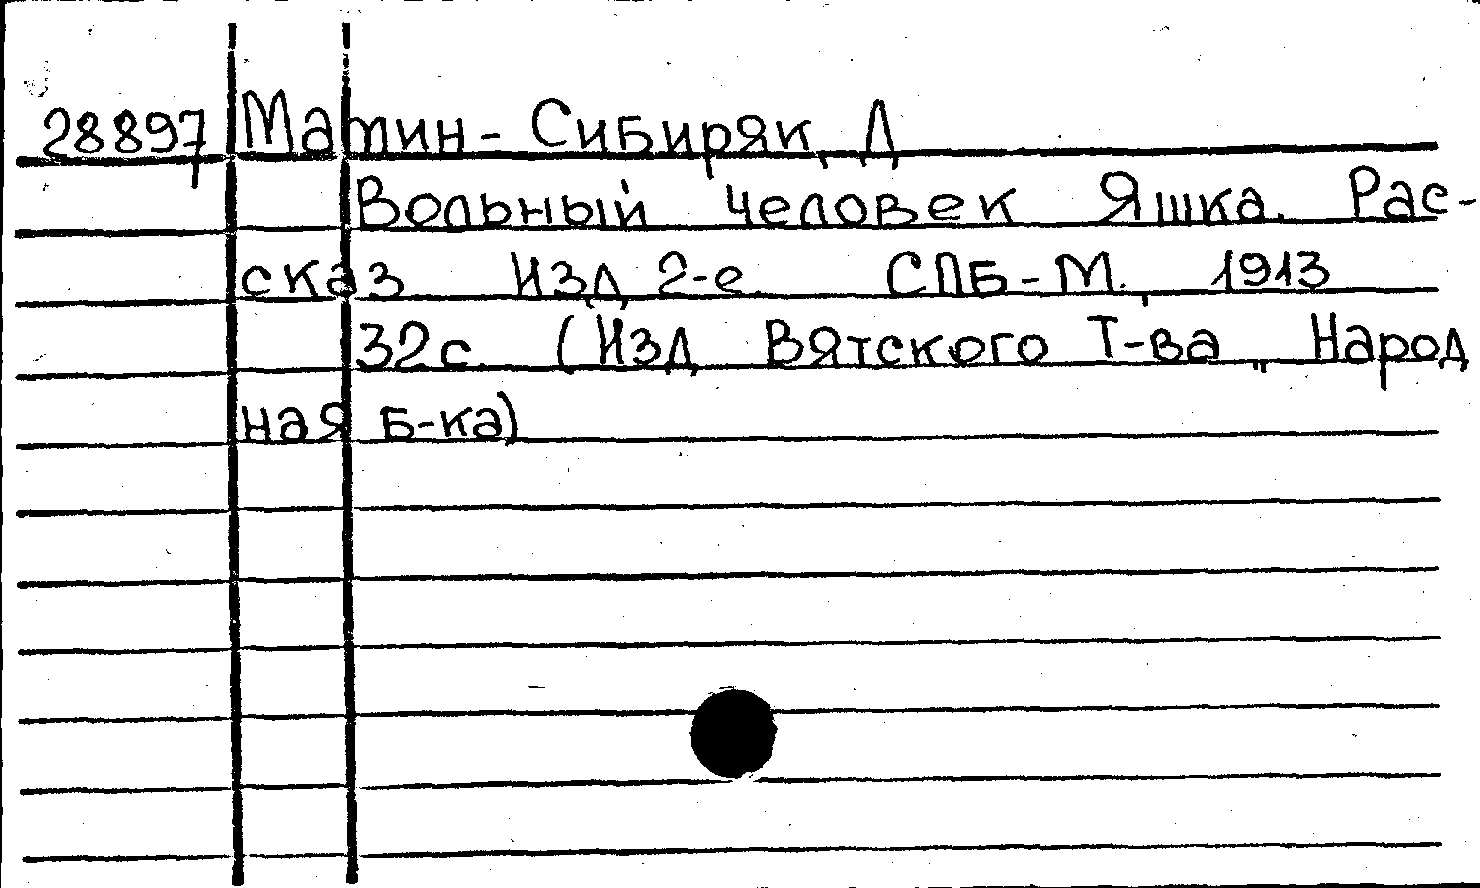 28897 Матин-Сибиряк, Д
Вольный человек Яшка. Рас-
сказ Изд, 2-е СПБ-М., 1913
32с. (Изд, Вятского Т-ва „Народ
ная Б-ка)